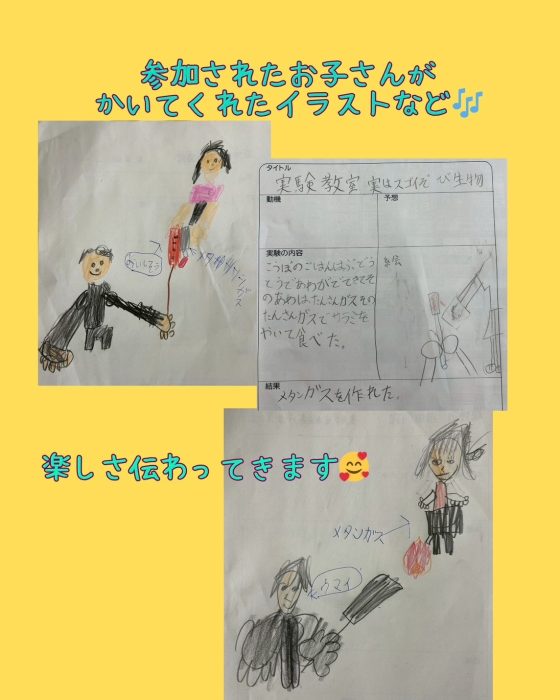 参加されたお子さんが
かいてくれたイラストなど🎶
おいしそう
タイトル
実験教室 実はスゴイぞ び生物
動機
予想
実験の内容
絵
こつぼのごはんはぶどう
とうであわがでてきてそ
のあわはたんさんガスその
たんさんガスでサラミを
やいて食べた。
結果
メタンガスを作れた。
楽しさ伝わってきます🥰
メタンガス
ウマイ